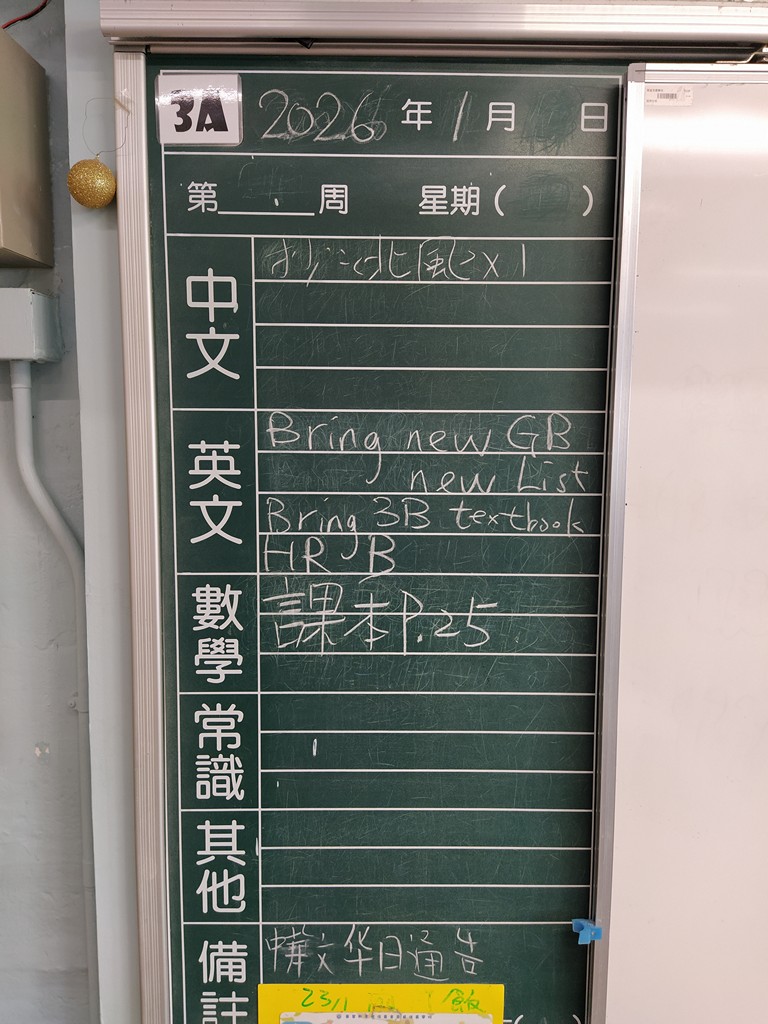 3A 2026 年 1 月 日
第 周 星期( )
中文
抄 北風 x 1
英文
Bring new GB
new List
Bring 3B textbook
HR B
數學
課本P.25
常識
其他
備註
文华日通告
23/1 飯